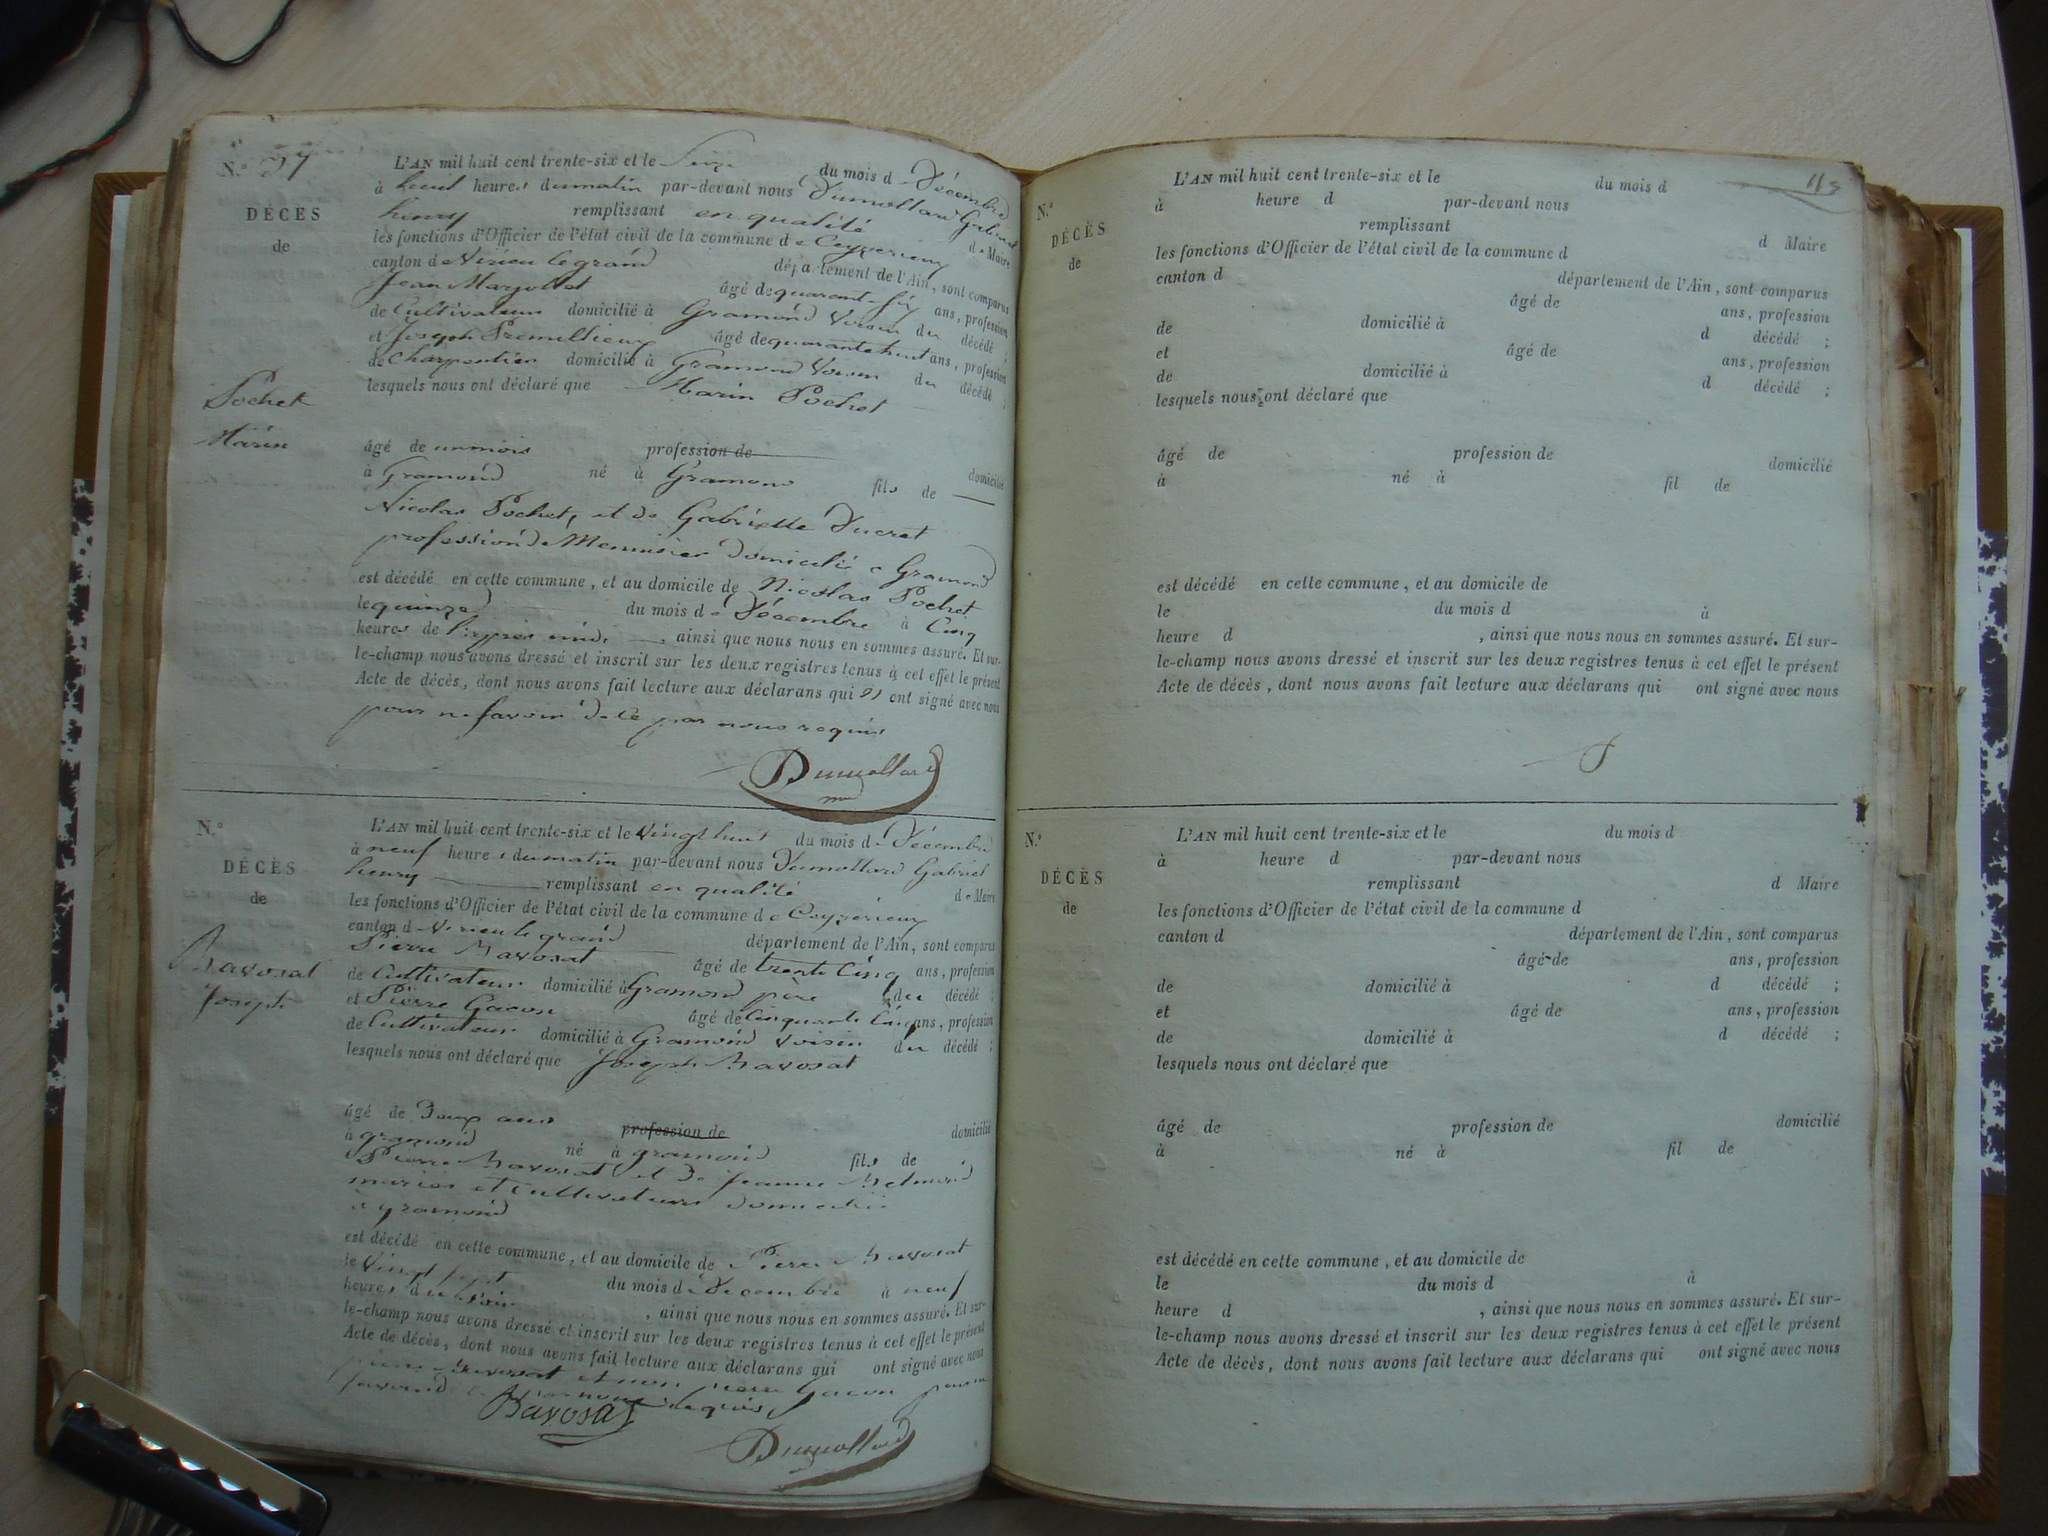 N.º 37
DÉCÈS
de
Pochet
Marin
L'AN mil huit cent trente-six et le Seize du mois de Décembre
à heures du matin par-devant nous Dumollard Gabriel
henry remplissant en qualité de Maire
les fonctions d'Officier de l'état civil de la commune de Ceyzerieu
canton de Virieu le grand département de l'Ain, sont comparus
Jean âgé de quarante six ans, profession
de Cultivateur domicilié à Gramond Voisin du décédé ;
et Joseph âgé de quarante huit ans, profession
de Charpentier domicilié à Gramond Voisin du décédé ;
lesquels nous ont déclaré que Marin Pochet
âgé de un mois profession de domicilié
à Gramond né à Gramond fils de
Nicolas Pochet, et de Gabrielle Ducret
profession de Menuisier domicilié a Gramond
est décédé en cette commune, et au domicile de Nicolas Pochet
le quinze du mois de Décembre à Cinq
heures de l'après midi, ainsi que nous nous en sommes assuré. Et sur-
le-champ nous avons dressé et inscrit sur les deux registres tenus à cet effet le présent
Acte de décès, dont nous avons fait lecture aux déclarans qui ont signé avec nous
pour ne savoir de ce par nous requis
Dumollard
N.º
DÉCÈS
de
Bavosat
Joseph
L'AN mil huit cent trente-six et le Vingt huit du mois de Décembre
à neuf heures du matin par-devant nous Dumollard Gabriel
henry remplissant en qualité de Maire
les fonctions d'Officier de l'état civil de la commune de Ceyzérieu
canton de Virieu le grand département de l'Ain, sont comparus
Pierre Bavosat âgé de trente Cinq ans, profession
de Cultivateur domicilié à Gramond père du décédé ;
et Pierre Gacon âgé de Cinquante Cinq ans, profession
de Cultivateur domicilié à Gramond Voisin du décédé ;
lesquels nous ont déclaré que Joseph Bavosat
âgé de Deux ans profession de domicilié
à gramond né à gramond fils de
Pierre Bavosat et de Jeanne
mariés et Cultivateurs domiciliés
à gramond
est décédé en cette commune, et au domicile de Pierre Bavosat
le Vingt sept du mois de Décembre à neuf
heures du soir, ainsi que nous nous en sommes assuré. Et sur-
le-champ nous avons dressé et inscrit sur les deux registres tenus à cet effet le présent
Acte de décès, dont nous avons fait lecture aux déclarans qui ont signé avec nous
pierre Bavosat et non pierre Gacon pour ne
savoir de ce par nous requis
Bavosat
Dumollard
113
N.º
DÉCÈS
de
L'AN mil huit cent trente-six et le du mois d
à heure d par-devant nous
remplissant d Maire
les fonctions d'Officier de l'état civil de la commune d
canton d département de l'Ain, sont comparus
âgé de ans, profession
de domicilié à d décédé ;
et âgé de ans, profession
de domicilié à d décédé ;
lesquels nous ont déclaré que
âgé de profession de domicilié
à né à fil de
est décédé en cette commune, et au domicile de
le du mois d à
heure d , ainsi que nous nous en sommes assuré. Et sur-
le-champ nous avons dressé et inscrit sur les deux registres tenus à cet effet le présent
Acte de décès, dont nous avons fait lecture aux déclarans qui ont signé avec nous
N.º
DÉCÈS
de
L'AN mil huit cent trente-six et le du mois d
à heure d par-devant nous
remplissant d Maire
les fonctions d'Officier de l'état civil de la commune d
canton d département de l'Ain, sont comparus
âgé de ans, profession
de domicilié à d décédé ;
et âgé de ans, profession
de domicilié à d décédé ;
lesquels nous ont déclaré que
âgé de profession de domicilié
à né à fil de
est décédé en cette commune, et au domicile de
le du mois d à
heure d , ainsi que nous nous en sommes assuré. Et sur-
le-champ nous avons dressé et inscrit sur les deux registres tenus à cet effet le présent
Acte de décès, dont nous avons fait lecture aux déclarans qui ont signé avec nous